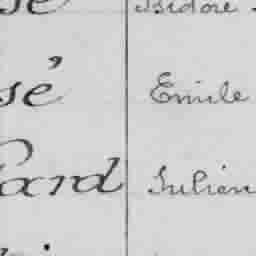 sé Isidore
sé Emile
ard Julien